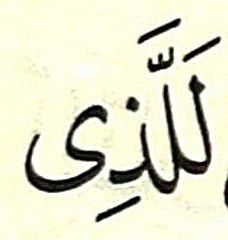 لَلَّذِى